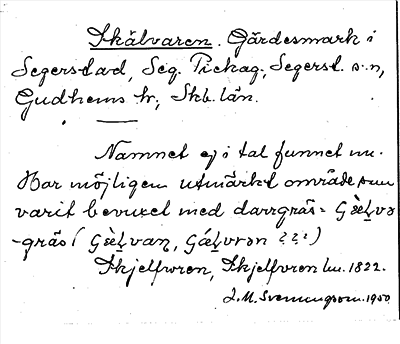 Skälvaren. Gärdesmark i
Segerstad, Seg. Pickag., Segerst. s:n,
Gudhems hr, Skb. län.
Namnet ej i tal funnet nu.
Har möjligen utmärkt område som
varit bevuxet med darrgräs =
-gräs (
Skjelfvren, Skjelfvren lm. 1822.
J. M. Svennungsson. 1950.